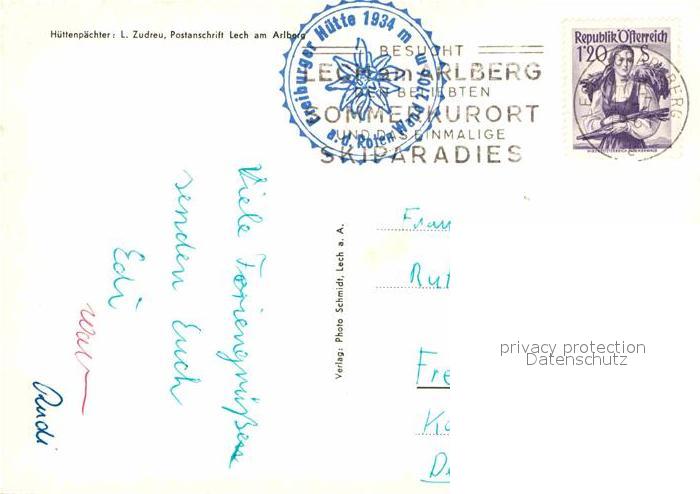 Hüttenpächter: L. Zudreu, Postanschrift Lech am Arlberg
Freiburger Hütte 1934 m
a. d. Roten Wand 2701 m
BESUCHT
LECH am ARLBERG
DEN BELIEBTEN
SOMMERKURORT
UND DAS EINMALIGE
SKIPARADIES
Republik Österreich
1'20 S
Viele Feriengrüßen
senden Euch
Edi
Rudi
Verlag: Photo Schmidt, Lech a. A.
Frau
Rut
Fre
privacy protection
Datenschutz